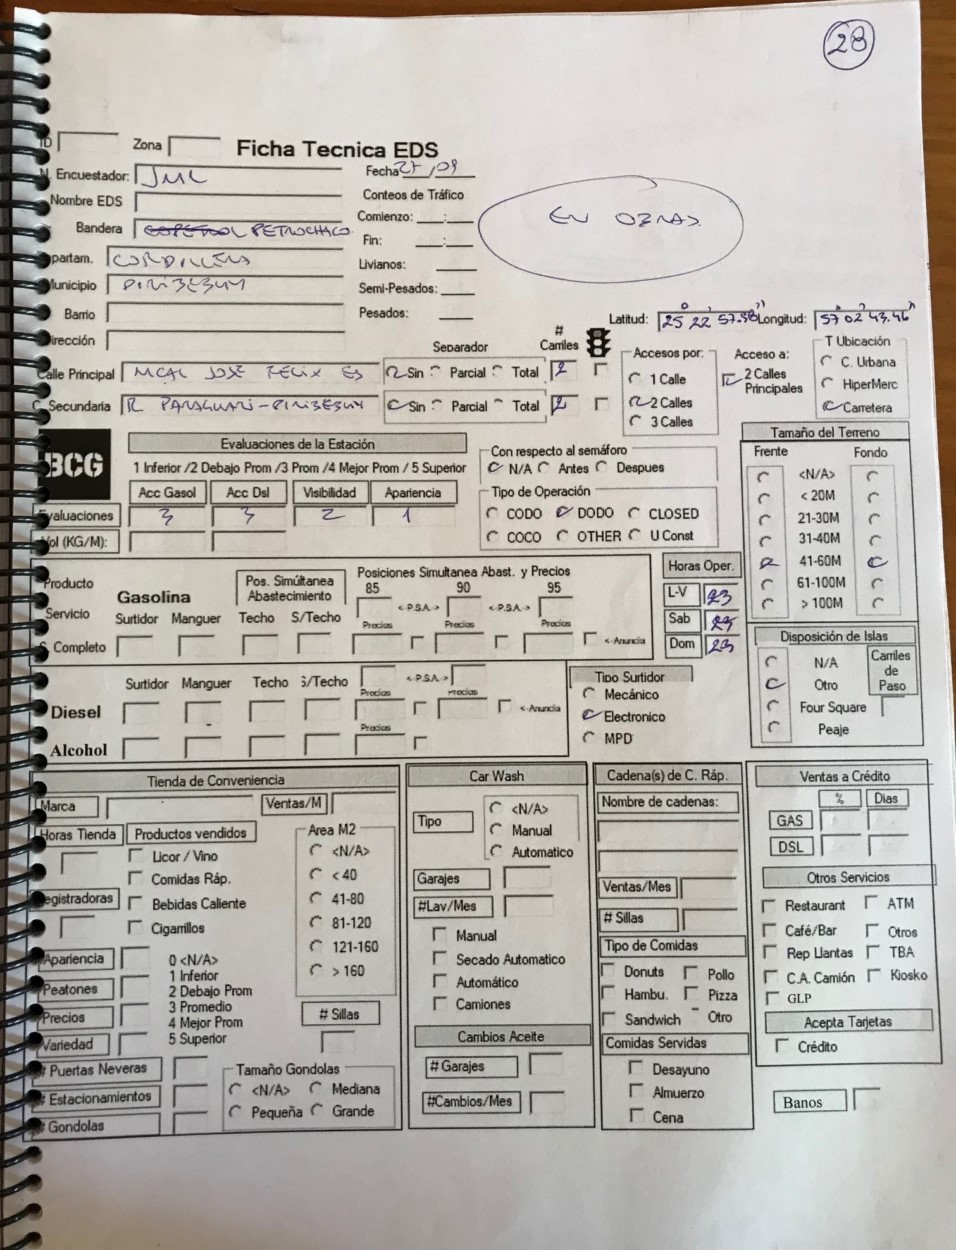 28
ID Zona Ficha Tecnica EDS
N. Encuestador: JML Fecha 27/09
Nombre EDS Conteos de Tráfico
Bandera PETROCHACO Comienzo: __:__
EN OBRAS
Fin: __:__
Departam. CORDILLERA Livianos:
Municipio PIRIBEBUY Semi-Pesados:
Barrio Pesados:
Latitud: 25° 22' 57.38" Longitud: 57° 02' 43.46"
Dirección
Separador # Carriles Accesos por: Acceso a: T Ubicación
Calle Principal MCAL JOSE FELIX ES Sin Parcial Total 2 1 Calle 2 Calles Principales C. Urbana
2 Calles HiperMerc
C. Secundaria R PARAGUARI-PIRIBEBUY Sin Parcial Total 2 3 Calles Carretera
BCG Evaluaciones de la Estación Con respecto al semáforo Tamaño del Terreno
1 Inferior /2 Debajo Prom /3 Prom /4 Mejor Prom / 5 Superior N/A Antes Despues Frente Fondo
Acc Gasol Acc Dsl Visibilidad Apariencia Tipo de Operación <N/A>
Evaluaciones 3 3 2 1 CODO DODO CLOSED < 20M
Vol (KG/M): COCO OTHER U Const 21-30M
31-40M
41-60M
61-100M
> 100M
Producto Gasolina Pos. Simúltanea Abastecimiento Posiciones Simultanea Abast. y Precios Horas Oper.
85 <-P.S.A.-> 90 <-P.S.A.-> 95 L-V 23
Servicio Surtidor Manguer Techo S/Techo Precios Precios Precios Sab
S. Completo <-Anuncia Dom 23
Disposición de Islas
N/A Carriles de Paso
Otro
Four Square
Peaje
Surtidor Manguer Techo S/Techo <-P.S.A-> Tipo Surtidor
Precios Precios Mecánico
Diesel <-Anuncia Electronico
Precios MPD
Alcohol
Tienda de Conveniencia
Marca Ventas/M
Horas Tienda Productos vendidos Area M2
Licor / Vino <N/A>
Comidas Ráp. < 40
Registradoras Bebidas Caliente 41-80
Cigarrillos 81-120
Apariencia 0 <N/A> 121-160
1 Inferior > 160
Peatones 2 Debajo Prom
Precios 3 Promedio # Sillas
4 Mejor Prom
Variedad 5 Superior
# Puertas Neveras Tamaño Gondolas
# Estacionamientos <N/A> Mediana
Pequeña Grande
# Gondolas
Car Wash
Tipo <N/A>
Manual
Automatico
Garajes
#Lav/Mes
Manual
Secado Automatico
Automático
Camiones
Cambios Aceite
# Garajes
#Cambios/Mes
Cadena(s) de C. Ráp.
Nombre de cadenas:
Ventas/Mes
# Sillas
Tipo de Comidas
Donuts Pollo
Hambu. Pizza
Sandwich Otro
Comidas Servidas
Desayuno
Almuerzo
Cena
Ventas a Crédito
% Dias
GAS
DSL
Otros Servicios
Restaurant ATM
Café/Bar Otros
Rep Llantas TBA
C.A. Camión Kiosko
GLP
Acepta Tarjetas
Crédito
Banos